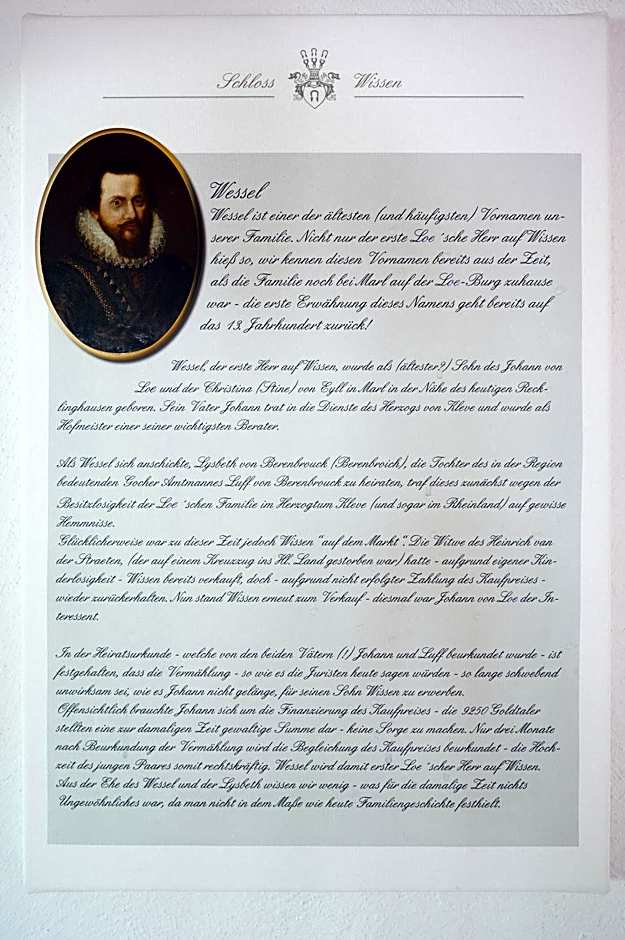 Schloss Wissen
Wessel
Wessel ist einer der ältesten (und häufigsten) Vornamen un-
serer Familie. Nicht nur der erste Loe´sche Herr auf Wissen
hieß so, wir kennen diesen Vornamen bereits aus der Zeit,
als die Familie noch bei Marl auf der Loe-Burg zuhause
war - die erste Erwähnung dieses Namens geht bereits auf
das 13. Jahrhundert zurück!
Wessel, der erste Herr auf Wissen, wurde als (ältester?) Sohn des Johann von
Loe und der Christina (Stine) von Eyll in Marl in der Nähe des heutigen Reck-
linghausen geboren. Sein Vater Johann trat in die Dienste des Herzogs von Kleve und wurde als
Hofmeister einer seiner wichtigsten Berater.
Als Wessel sich anschickte, Lysbeth von Berenbrouck (Berenbroich), die Tochter des in der Region
bedeutenden Gocher Amtmannes Luff von Berenbrouck zu heiraten, traf dieses zunächst wegen der
Besitzlosigkeit der Loe´schen Familie im Herzogtum Kleve (und sogar im Rheinland) auf gewisse
Hemmnisse.
Glücklicherweise war zu dieser Zeit jedoch Wissen "auf dem Markt". Die Witwe des Heinrich van
der Straeten, (der auf einem Kreuzzug ins Hl. Land gestorben war) hatte - aufgrund eigener Kin-
derlosigkeit - Wissen bereits verkauft, doch - aufgrund nicht erfolgter Zahlung des Kaufpreises -
wieder zurückerhalten. Nun stand Wissen erneut zum Verkauf - diesmal war Johann von Loe der In-
teressent.
In der Heiratsurkunde - welche von den beiden Vätern (!) Johann und Luff beurkundet wurde - ist
festgehalten, dass die Vermählung - so wie es die Juristen heute sagen würden - so lange schwebend
unwirksam sei, wie es Johann nicht gelänge, für seinen Sohn Wissen zu erwerben.
Offensichtlich brauchte Johann sich um die Finanzierung des Kaufpreises - die 9250 Goldtaler
stellten eine zur damaligen Zeit gewaltige Summe dar - keine Sorge zu machen. Nur drei Monate
nach Beurkundung der Vermählung wird die Begleichung des Kaufpreises beurkundet - die Hoch-
zeit des jungen Paares somit rechtskräftig. Wessel wird damit erster Loe´scher Herr auf Wissen.
Aus der Ehe des Wessel und der Lysbeth wissen wir wenig - was für die damalige Zeit nichts
Ungewöhnliches war, da man nicht in dem Maße wie heute Familiengeschichte festhielt.